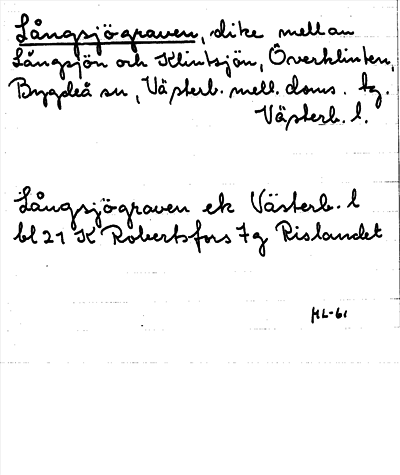 Långsjögraven, dike mellan
Långsjön och Klintsjön, Överklinten,
Bygdeå sn, Västerb. mell. doms. tg.
Västerb. l.
Långsjögraven ek Västerb. l
bl 21 K Robertsfors 7g Rislandet
HL-61